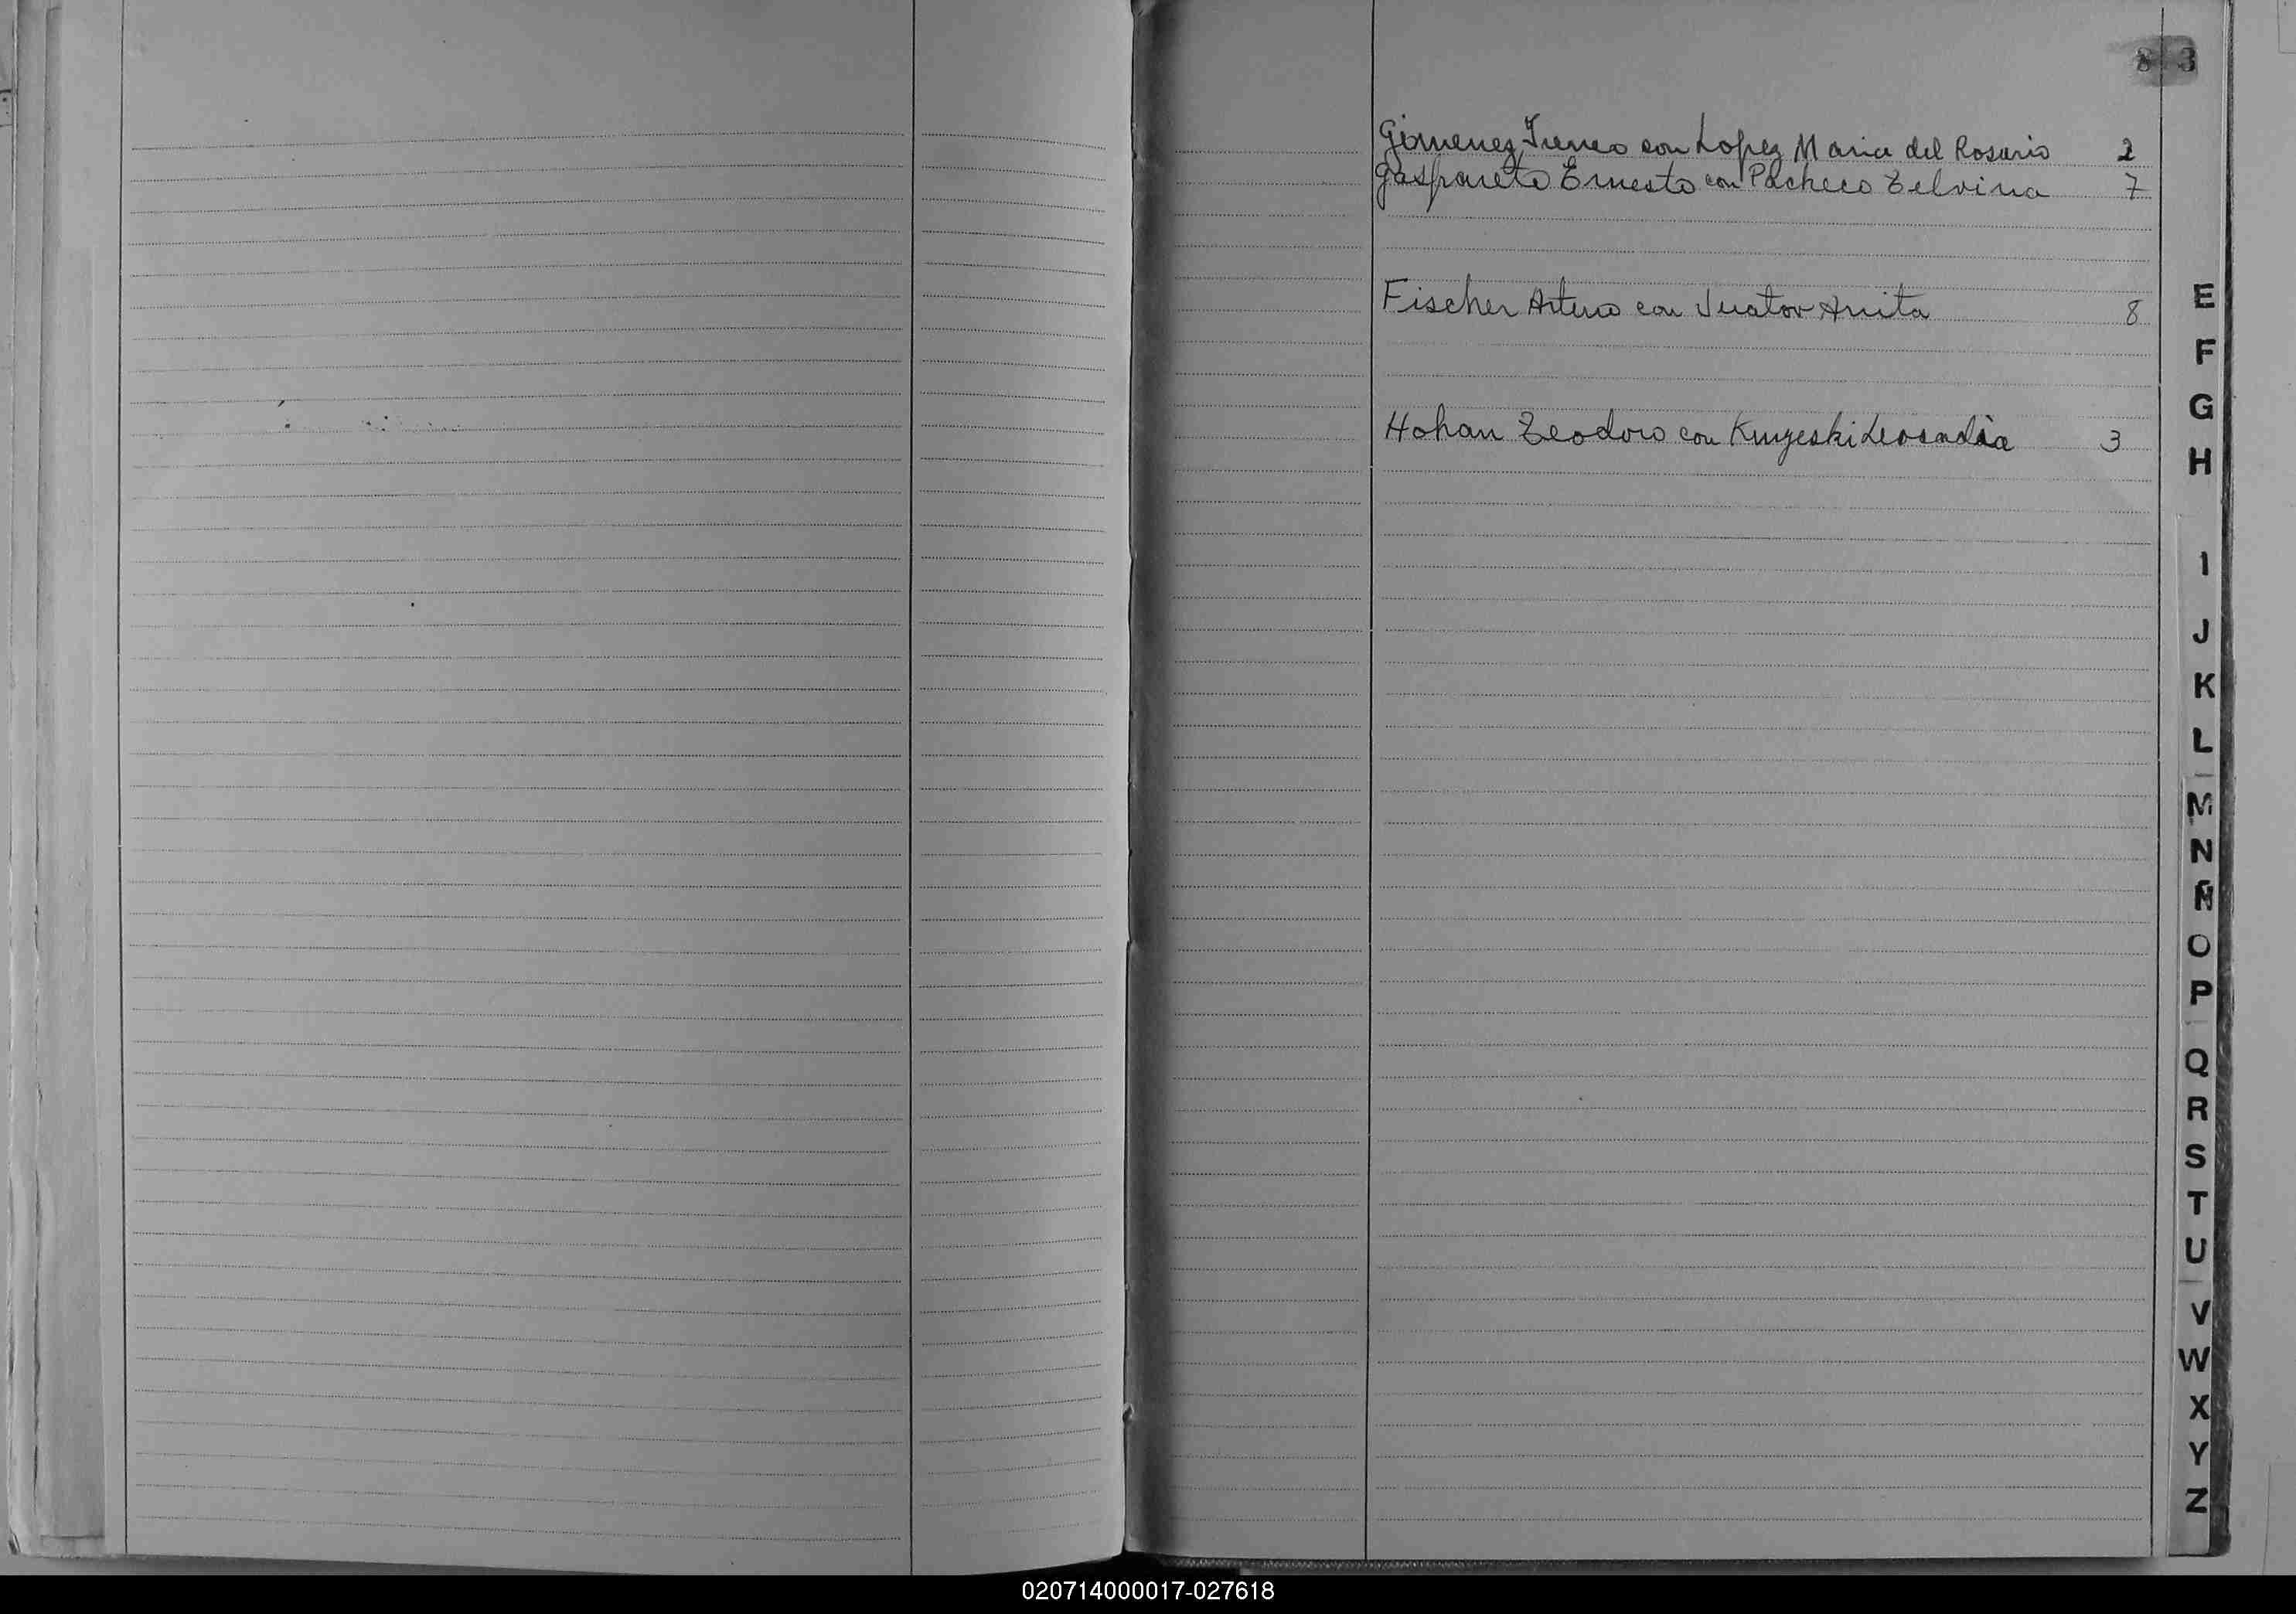 83
Gimenez Ireneo con Lopez Maria del Rosario 2
Gaspareto Ernesto con Pacheco Zelvina 7
Fischer Arturo con Anita 8
Hohan Teodoro con Leocadia 3
E
F
G
H
I
J
K
L
M
N
Ñ
O
P
Q
R
S
T
U
V
W
X
Y
Z
020714000017-027618